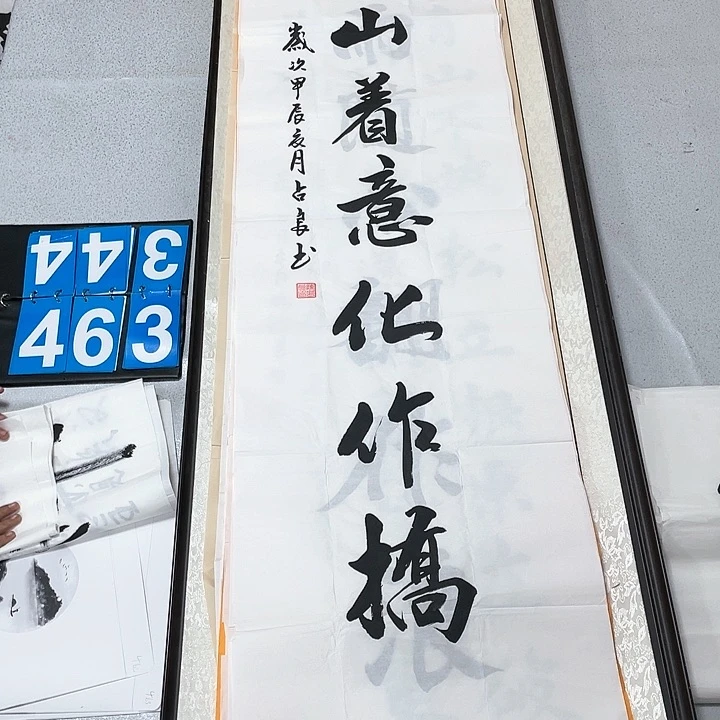 山着意化作橋
歲次甲辰夏月占良书
344
463